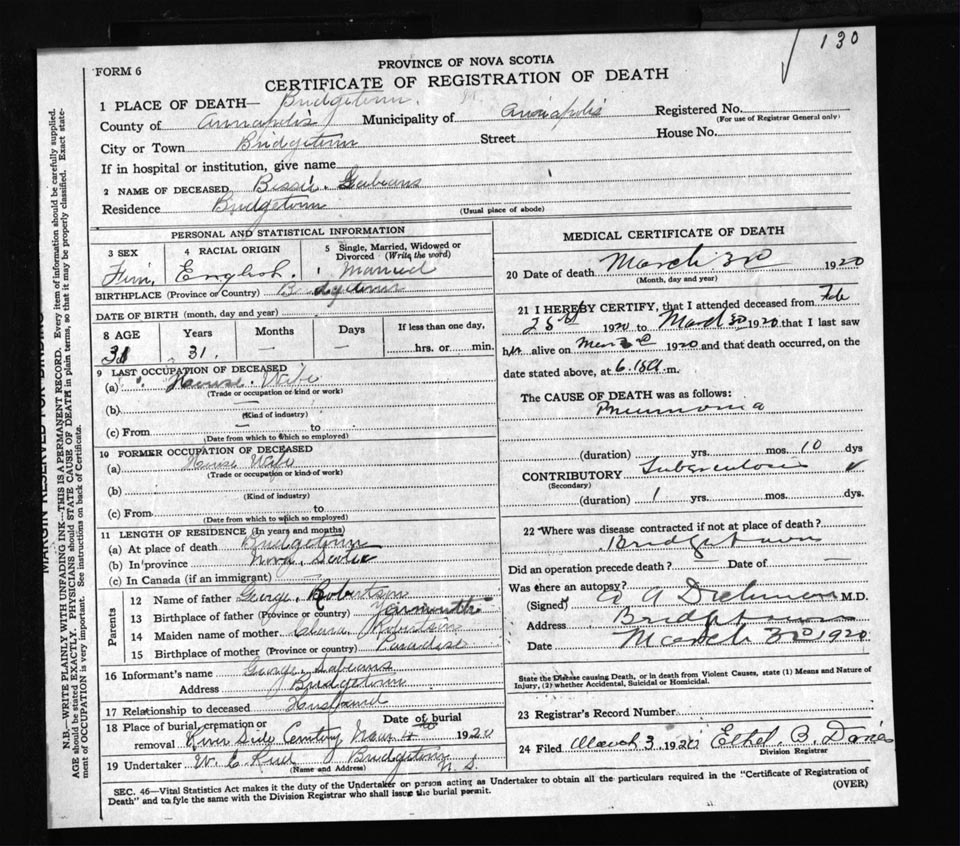 130
FORM 6
PROVINCE OF NOVA SCOTIA
CERTIFICATE OF REGISTRATION OF DEATH
1 PLACE OF DEATH— Bridgetown.
County of Annapolis Municipality of Annapolis Registered No.
(For use of Registrar General only)
City or Town Bridgetown Street House No.
If in hospital or institution, give name
2 NAME OF DECEASED Bessie
Residence Bridgetown
(Usual place of abode)
PERSONAL AND STATISTICAL INFORMATION
3 SEX 4 RACIAL ORIGIN 5 Single, Married, Widowed or Divorced (Write the word)
Fem. English. Married
BIRTHPLACE (Province or Country) Bridgetown
DATE OF BIRTH (month, day and year)
8 AGE Years Months Days If less than one day,
31 31 — — hrs. or min.
9 LAST OCCUPATION OF DECEASED
(a) House Wife
(Trade or occupation or kind or work)
(b) —
(Kind of industry)
(c) From — to
(Date from which to which so employed)
10 FORMER OCCUPATION OF DECEASED
(a) House Wife
(Trade or occupation or kind of work)
(b)
(Kind of industry)
(c) From to
(Date from which to which so employed)
11 LENGTH OF RESIDENCE (In years and months)
(a) At place of death Bridgetown
(b) In province Nova Scotia
(c) In Canada (if an immigrant) —
Parents
12 Name of father George Robertson
13 Birthplace of father (Province or country) Yarmouth
14 Maiden name of mother Robertson
15 Birthplace of mother (Province or country) Paradise
16 Informant's name George Sabeans
Address Bridgetown
17 Relationship to deceased Husband
18 Place of burial, cremation or removal River Side Cemetery Date of burial 4 1920
19 Undertaker W. E. Bridgetown N. S.
(Name and Address)
MEDICAL CERTIFICATE OF DEATH
20 Date of death March 3rd 1920
(Month, day and year)
21 I HEREBY CERTIFY, that I attended deceased from Feb
25th 1920 to March 3rd 1920 that I last saw
her alive on Mar 3rd 1920 and that death occurred, on the
date stated above, at 6.15 a.m.
The CAUSE OF DEATH was as follows:
Pneumonia
(duration) yrs. mos. 10 dys
CONTRIBUTORY Tuberculosis
(Secondary)
(duration) 1 yrs. mos. dys.
22 Where was disease contracted if not at place of death?
Bridgetown
Did an operation precede death? Date of
Was there an autopsy?
(Signed) A A Dechman M.D.
Address Bridgetown
Date March 3rd 1920
State the Disease causing Death, or in death from Violent Causes, state (1) Means and Nature of
Injury, (2) whether Accidental, Suicidal or Homicidal.
23 Registrar's Record Number
24 Filed March 3, 1920 Ethel B. Davies
Division Registrar
SEC. 46—Vital Statistics Act makes it the duty of the Undertaker or person acting as Undertaker to obtain all the particulars required in the "Certificate of Registration of
Death" and to fyle the same with the Division Registrar who shall issue the burial permit.
(OVER)
MARGIN RESERVED FOR BINDING
N.B.—WRITE PLAINLY WITH UNFADING INK—THIS IS A PERMANENT RECORD. Every item of information should be carefully supplied.
AGE should be stated EXACTLY. PHYSICIANS should STATE CAUSE OF DEATH in plain terms, so that it may be properly classified. Exact state-
ment of OCCUPATION is very important. See instructions on back of Certificate.